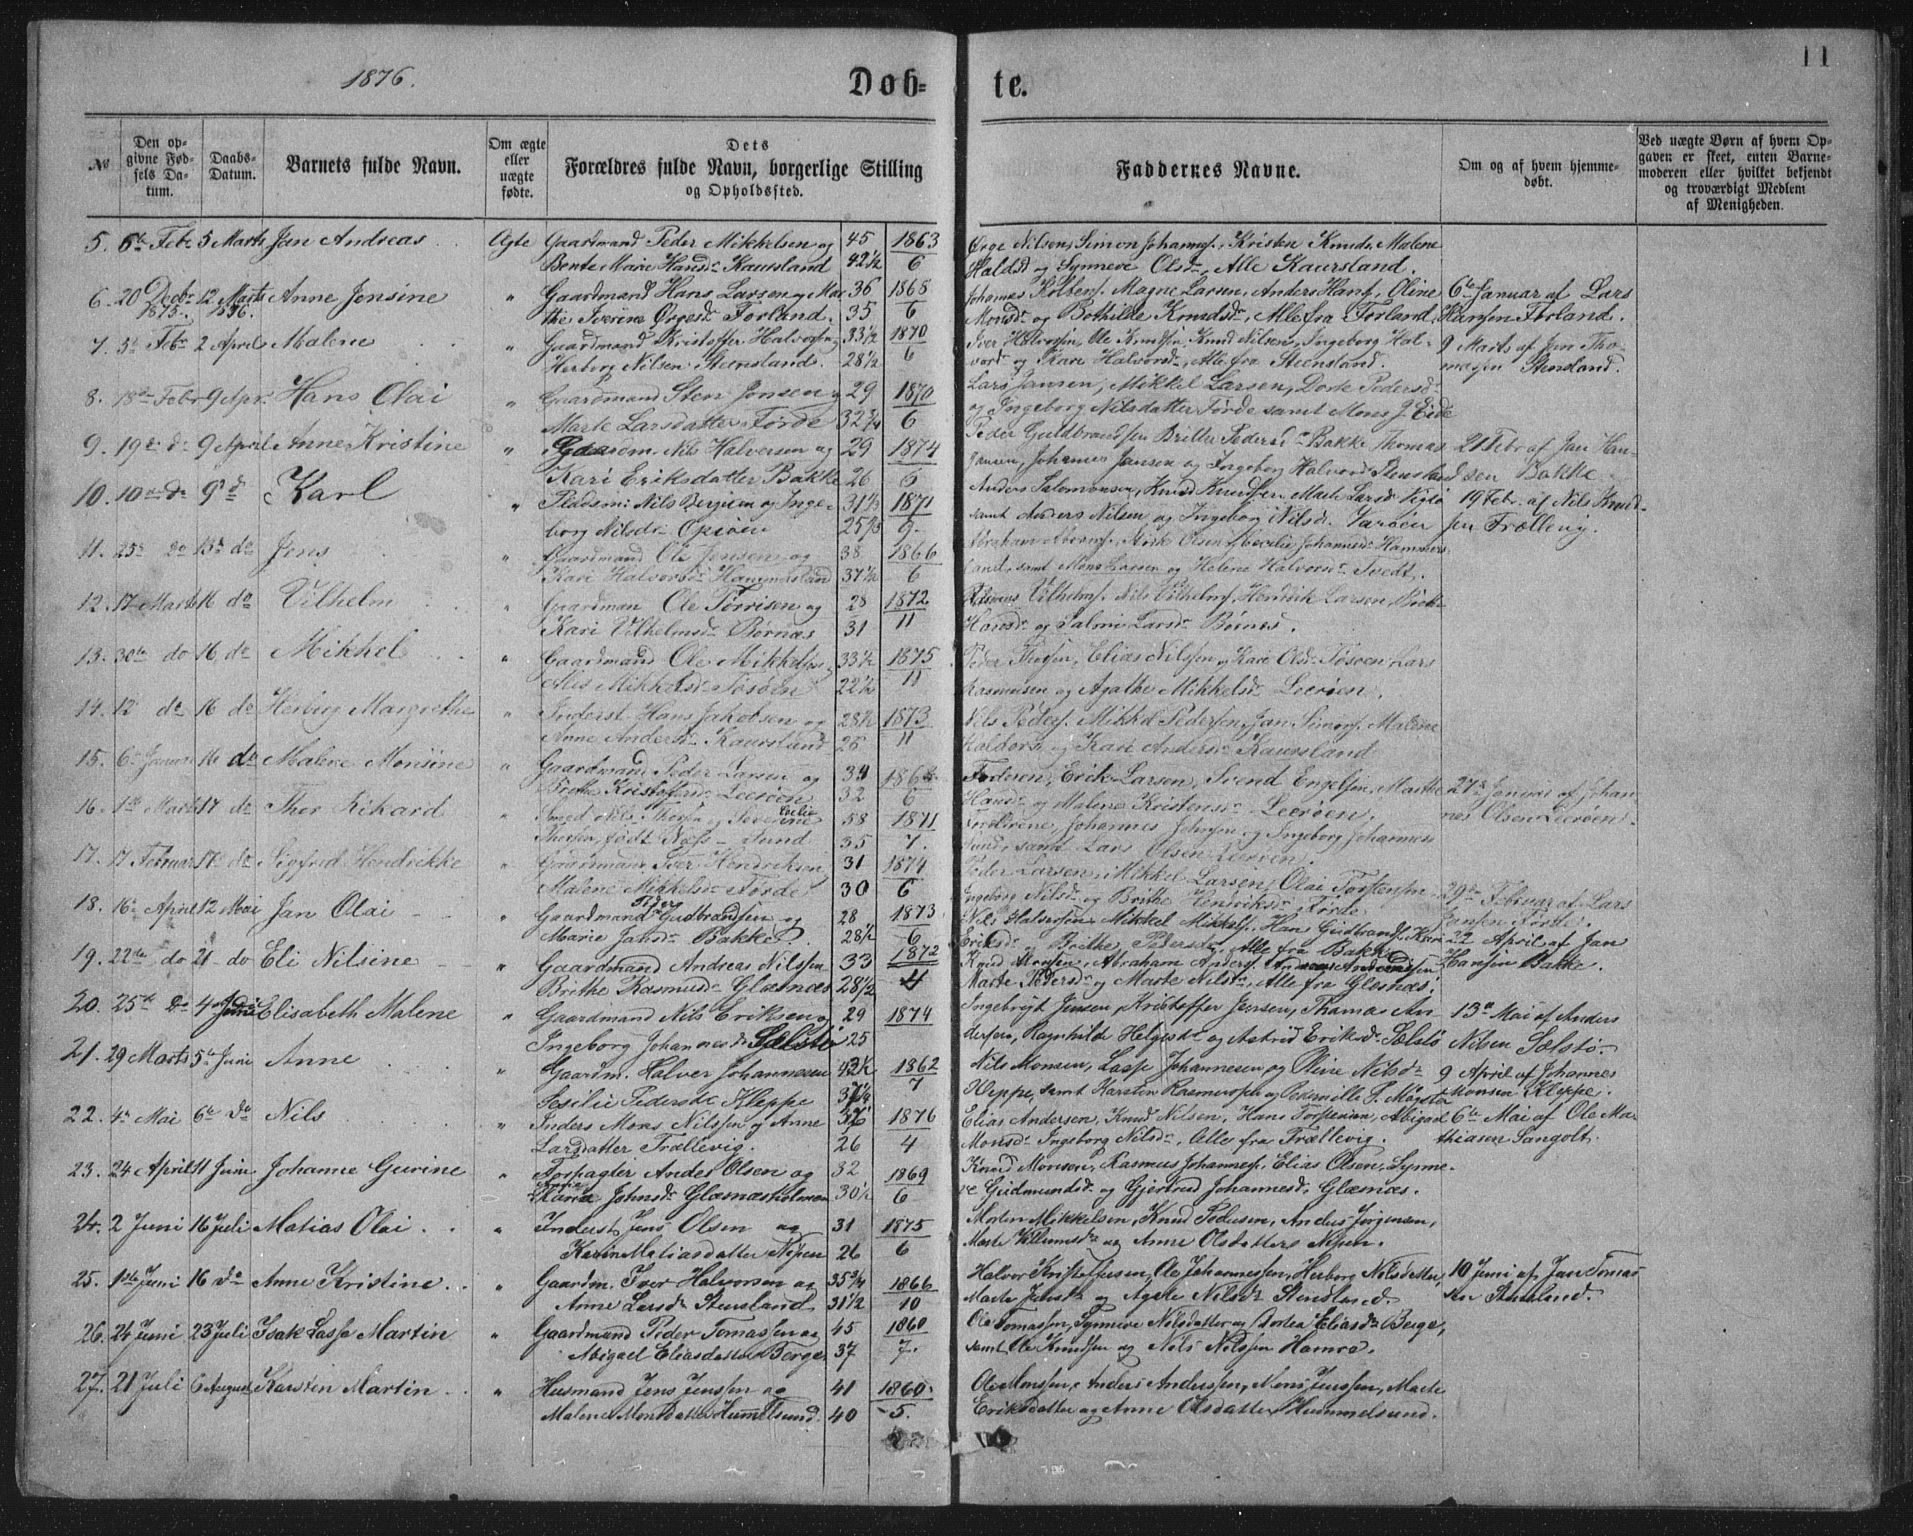 11
1876.
Døb- te.
№ Den opgivne Fødsels Datum. Daabs-Datum. Barnets fulde Navn. Om ægte eller uægte fødte. Dets Forældres fulde Navn, borgerlige Stilling og Opholdssted. Faddernes Navne. Om og af hvem hjemmedøbt. Ved uægte Børn af hvem Opgaven er skeet, enten Barnemoderen eller hvilket bekjendt og troværdigt Medlem af Menigheden.
5. 6te Feb 5 Marts Jan Andreas Ægte Gaardmand Peder Mikkelsen og 45 1863 Nilsen, Simon Johannes., Kristen Knuds. Malene
Bente Marie Hansd. Kaursland 42½ 6 Haldsd og Synneve Olsd., Alle Kaursland.
6. 20 Decbr 1875. 12 Marts 1876. Anne Jonsine " Gaardmand Hans Larsen og Mar 36 1868 Johannes Kolbens., Magne Larsen, Anders Hans., Oline 6te Januar af Lars
the Iverine Ørgesd. Forland. 35 6 Monsd. og Bothilde Knudsd., Alle fra Forland. Hansen Forland.
7. 5te Febr 2 April Malene " Gaardmand Kristoffer Halvorsen 33½ 1870 Iver Halvorsen, Ole Knudsen, Knud Nilsen, Ingeborg Hal- 9 Marts af Jan Tho-
Herborg Nilsen Stensland. 28½ 6 vorsd. og Kari Halvorsd., Alle fra Steensland. masen Stensland.
8. 18de Febr 9 Apr. Hans Olai " Gaardmand Sten Jonsen 29 1870 Lars Jansen, Mikkel Larsen, Dorte Pedersd
Marte Larsdatter Førde 32¾ 6 og Ingeborg Nilsdatter Førde samt Mons J. Eide
9. 19de do 9 April Anne Kristine " Gaardm. Nils Halversen og 29 1874 Peder Guldbrandsen Britte Pedersd. Bakke Thomas 21 Febr af Jan Han-
Kari Eriksdatter Bakke 26 6 Jansen, Johannes Jansen og Ingeborg Halvorsd Stensland sen Bakke
10. 10de do 9 do Karl " Pladsm: Nils Bergesen og Inge- 31½ 1871 Anders Salomonsen, Knud Knudsen, Marte Larsd 19 Febr. af Nils Knud-
borg Nilsdr. 9. samt Anders Nilsen og Ingeborg Nilsd. sen Trællevig.
11. 25de do 13de do Jens " Gaardmand Ole Jensen og 38 1866 Abraham Olsen Cecilie Johannesd Hammers-
Kari Halvorsd Hammersland 37½ 6 land, samt Mons Larsen og Helene Halvorsd. Tvedt.
12. 17 Marts 16 do Vilhelm " Gaardman Ole Torrisen og 28 1872 Vilhelms. Nils Vilhelms. Hendrik Larsen,
Kari Vilhelmsd. Børnæs 31 11 Hansd. og Salmi Larsd. Børnes.
13. 30te do 16 do Mikkel " Gaardmand Ole Mikkelsen 33½ 1875 Peder Elias Nilssen og Kari Olsd. Tøsøen Lars
Mikkelsd. Tøsøen 22½ 11 Rasmusen og Agathe Mikkelsd. Leerøen.
14. 12 do 16 do Herborg Margrethe " Inderst Hans Jakobsen og 28½ 1873 Nils Peders. Mikkel Pedersen, Jan Simons. Malene
Anne Andersd. Kaursland 26 11 Haldors. og Kari Andersd. Kaursland
15. 6te Januar 16 do Malene Monsine " Gaardmand Peder Larsen og 34 Federsen, Erik Larsen, Svend Engelsen, Marthe 27de Januar af Johan-
Brithe Kristofersd. Leerøen 32 6 Hansd. og Malene Kristensd. Leerøen. nes Olsen Leerøen.
16. 1ste Marts 17 do Thor Rikard " Smed Nils Thorsen og Severine 58 1871 Johannes Johnsen og Ingeborg Johannes
Thorsen, født Næss - Sund 35 7. Sund, samt Lars Olsen Leerøen.
17. 17 Februar 17 do Sigfred Hendrikke " Gaardmand Iver Hendriksen 31 1874 Peder Larsen, Mikkel Larsen, Olai Torstensen 29de Februar af Lars
Malene Mikkelsd. Førde 30 6 Ingeborg Nilsd. og Brithe Henriksd. Førde Jansen Førde.
18. 16de April 12 Mai Jan Olai " Gaardmand Peder Gudbrandsen og 28 1873 Nils Halvorsen Mikkel Mikkels. Han Gudbrands. Kari 22 April af Jan
Marie Jansd. Bakke. 28½ 6 Eriksd. og Brithe Pedersd. Alle fra Bakke Hansen Bakke.
19. 22de do 21 do Eli Nilsine " Gaardmand Andreas Nilssen 33 1872 Knud Monsen, Abraham Anders. Andersen
Brithe Rasmusd. Glæsnæs 28½ 4 Marte Pedersd. og Marte Nilsd., Alle fra Glesnæs.
20. 25de do 4 Juni Elisabeth Malene " Gaardmand Nils Eriksen og 29 1874 Ingebrigt Jensen, Kristoffer Jensen, Thomas An- 13de Mai af Anders
Ingeborg Johannesd. Sælstø 25 dersen, Ragnhilde Helgesd. og Astrid Eriksd. Sælstø Nilsen Sælstø.
21. 29 Marts 5te Juni Anne " Gaardm. Halver Johannesen 42½ 1862 Nils Monsen, Lasse Johannesen og Oline Nilsd. 9 April af Johannes
Sesilie Pedersd. Kleppe 37¼ 7 Kleppe, samt Karsten Rasmussen og Pedernille P. Møgster Monsen Kleppe.
22. 4de Mai 6te do Nils " Inders Mons Nilssen og Anne 1876 Elias Andersen, Knud Nilsen, Hans Abigael 6te Mai af Ole Ma-
Larsdatter Trællevig. 26 4 Monsd. Ingeborg Nilsd., Alle fra Trællevig. thiasen Sangolt.
23. 24 April 11 Juni Johanne Gurine " Forpagter Ander Olsen og 32 1869 Knud Monsen, Rasmus Johannes., Elias Olsen, Synne-
Johnsd. Glæsnæsholmen 30½ 6 ve Gudmundsd. og Gjertrud Johannesd. Glæsnæs.
24. 2 Juni 16 Juli Matias Olai " Inderst Jens Olsen og 31 1875 Morten Mikkelsen, Knud Pedersen, Anders Jørgensen,
Karen Matiasdatter Nipen 26 6 Marte Villumsd. og Anne Olsdatter Nipen.
25. 1ste Juni 16 do Anne Kristine " Gaardm. Iver Halvorsen og 35¾ 1866 Halvor Kristoffersen, Ole Johannessen, Herborg Nilsdatter, 10 Juni af Jan Tomas-
Anne Larsd. Stensland 31½ 10 Marte Jensd. og Agate Nilsd. Stensland. sen Stensland.
26. 24 Juni 23 Juli Isak Lasse Martin " Gaardmand Peder Tomassen og 45 1860 Ole Tomassen, Synneve Nilsdatter og Dortea Eliasd. Berge,
Abigael Eliasdatter Berge 37 7. samt Ole Knudsen og Nils Nilssen Hamre.
27. 21 Juli 6 August Karsten Martin " Husmand Jens Jenssen og 41 1860. Ole Monssen, Anders Anderssen, Mons Jenssen, Marte
Malene Monsdatter Hummelsund. 40 5. Eriksdatter og Anne Olsdatter Hummelsund.